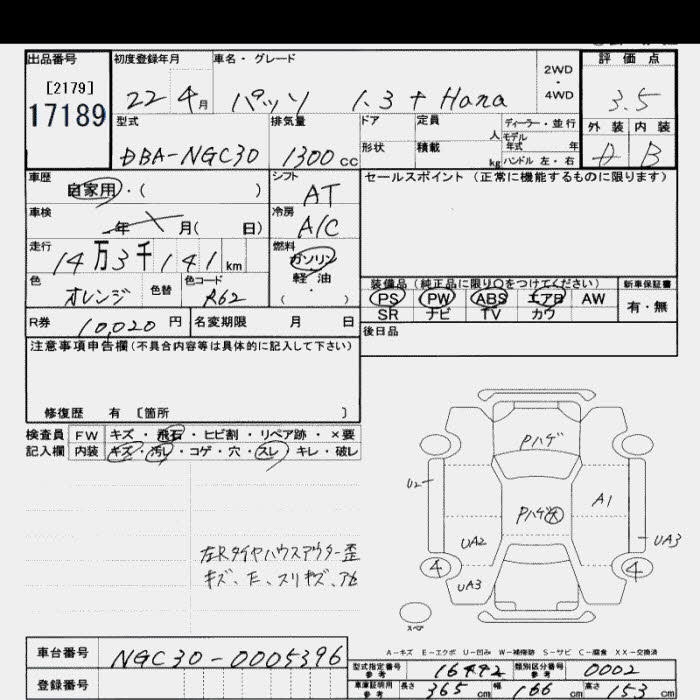 出品番号 初度登録年月 車名・グレード 2WD・4WD 評価点
[2179]
17189 22 4月 パッソ 1.3 + Hana 3.5
型式 排気量 ドア 定員 人 ディーラー・並行 外装 内装
モデル年式 年
DBA-NGC30 1300cc 形状 積載 kg ハンドル 左・右 B
車歴 自家用・( ) シフト AT セールスポイント(正常に機能するものに限ります)
車検 年 月( 日) 冷房 A/C
走行 14万3千141km 燃料 ガソリン
軽油
( )
色 オレンジ 色替 色コード R62
装備品(純正品に限り○をつけてください) 新車保証書
PS PW ABS エアB AW 有・無
SR ナビ TV カワ
R券 10,020円 名変期限 月 日 後日品
注意事項申告欄(不具合内容等は具体的に記入して下さい)
修復歴 有 [箇所 ]
検査員 FW キズ・飛石・ヒビ割・リペア跡・×要
記入欄 内装 キズ・汚レ・コゲ・穴・スレ・キレ・破レ
Pハゲ
U2 A1
Pハゲ大
UA2 UA3
4 4
UA3
左Rタイヤハウスアウター歪
キズ、E、スリキズ、
スペア
A-キズ E-エクボ U-凹み W-補修跡 S-サビ C-腐食 XX-交換済
車台番号 NGC30-0005396
型式指定番号 参考 16492 類別区分番号 参考 0002
登録番号 車庫証明用 参考 長さ 365cm 幅 166cm 高さ 153cm